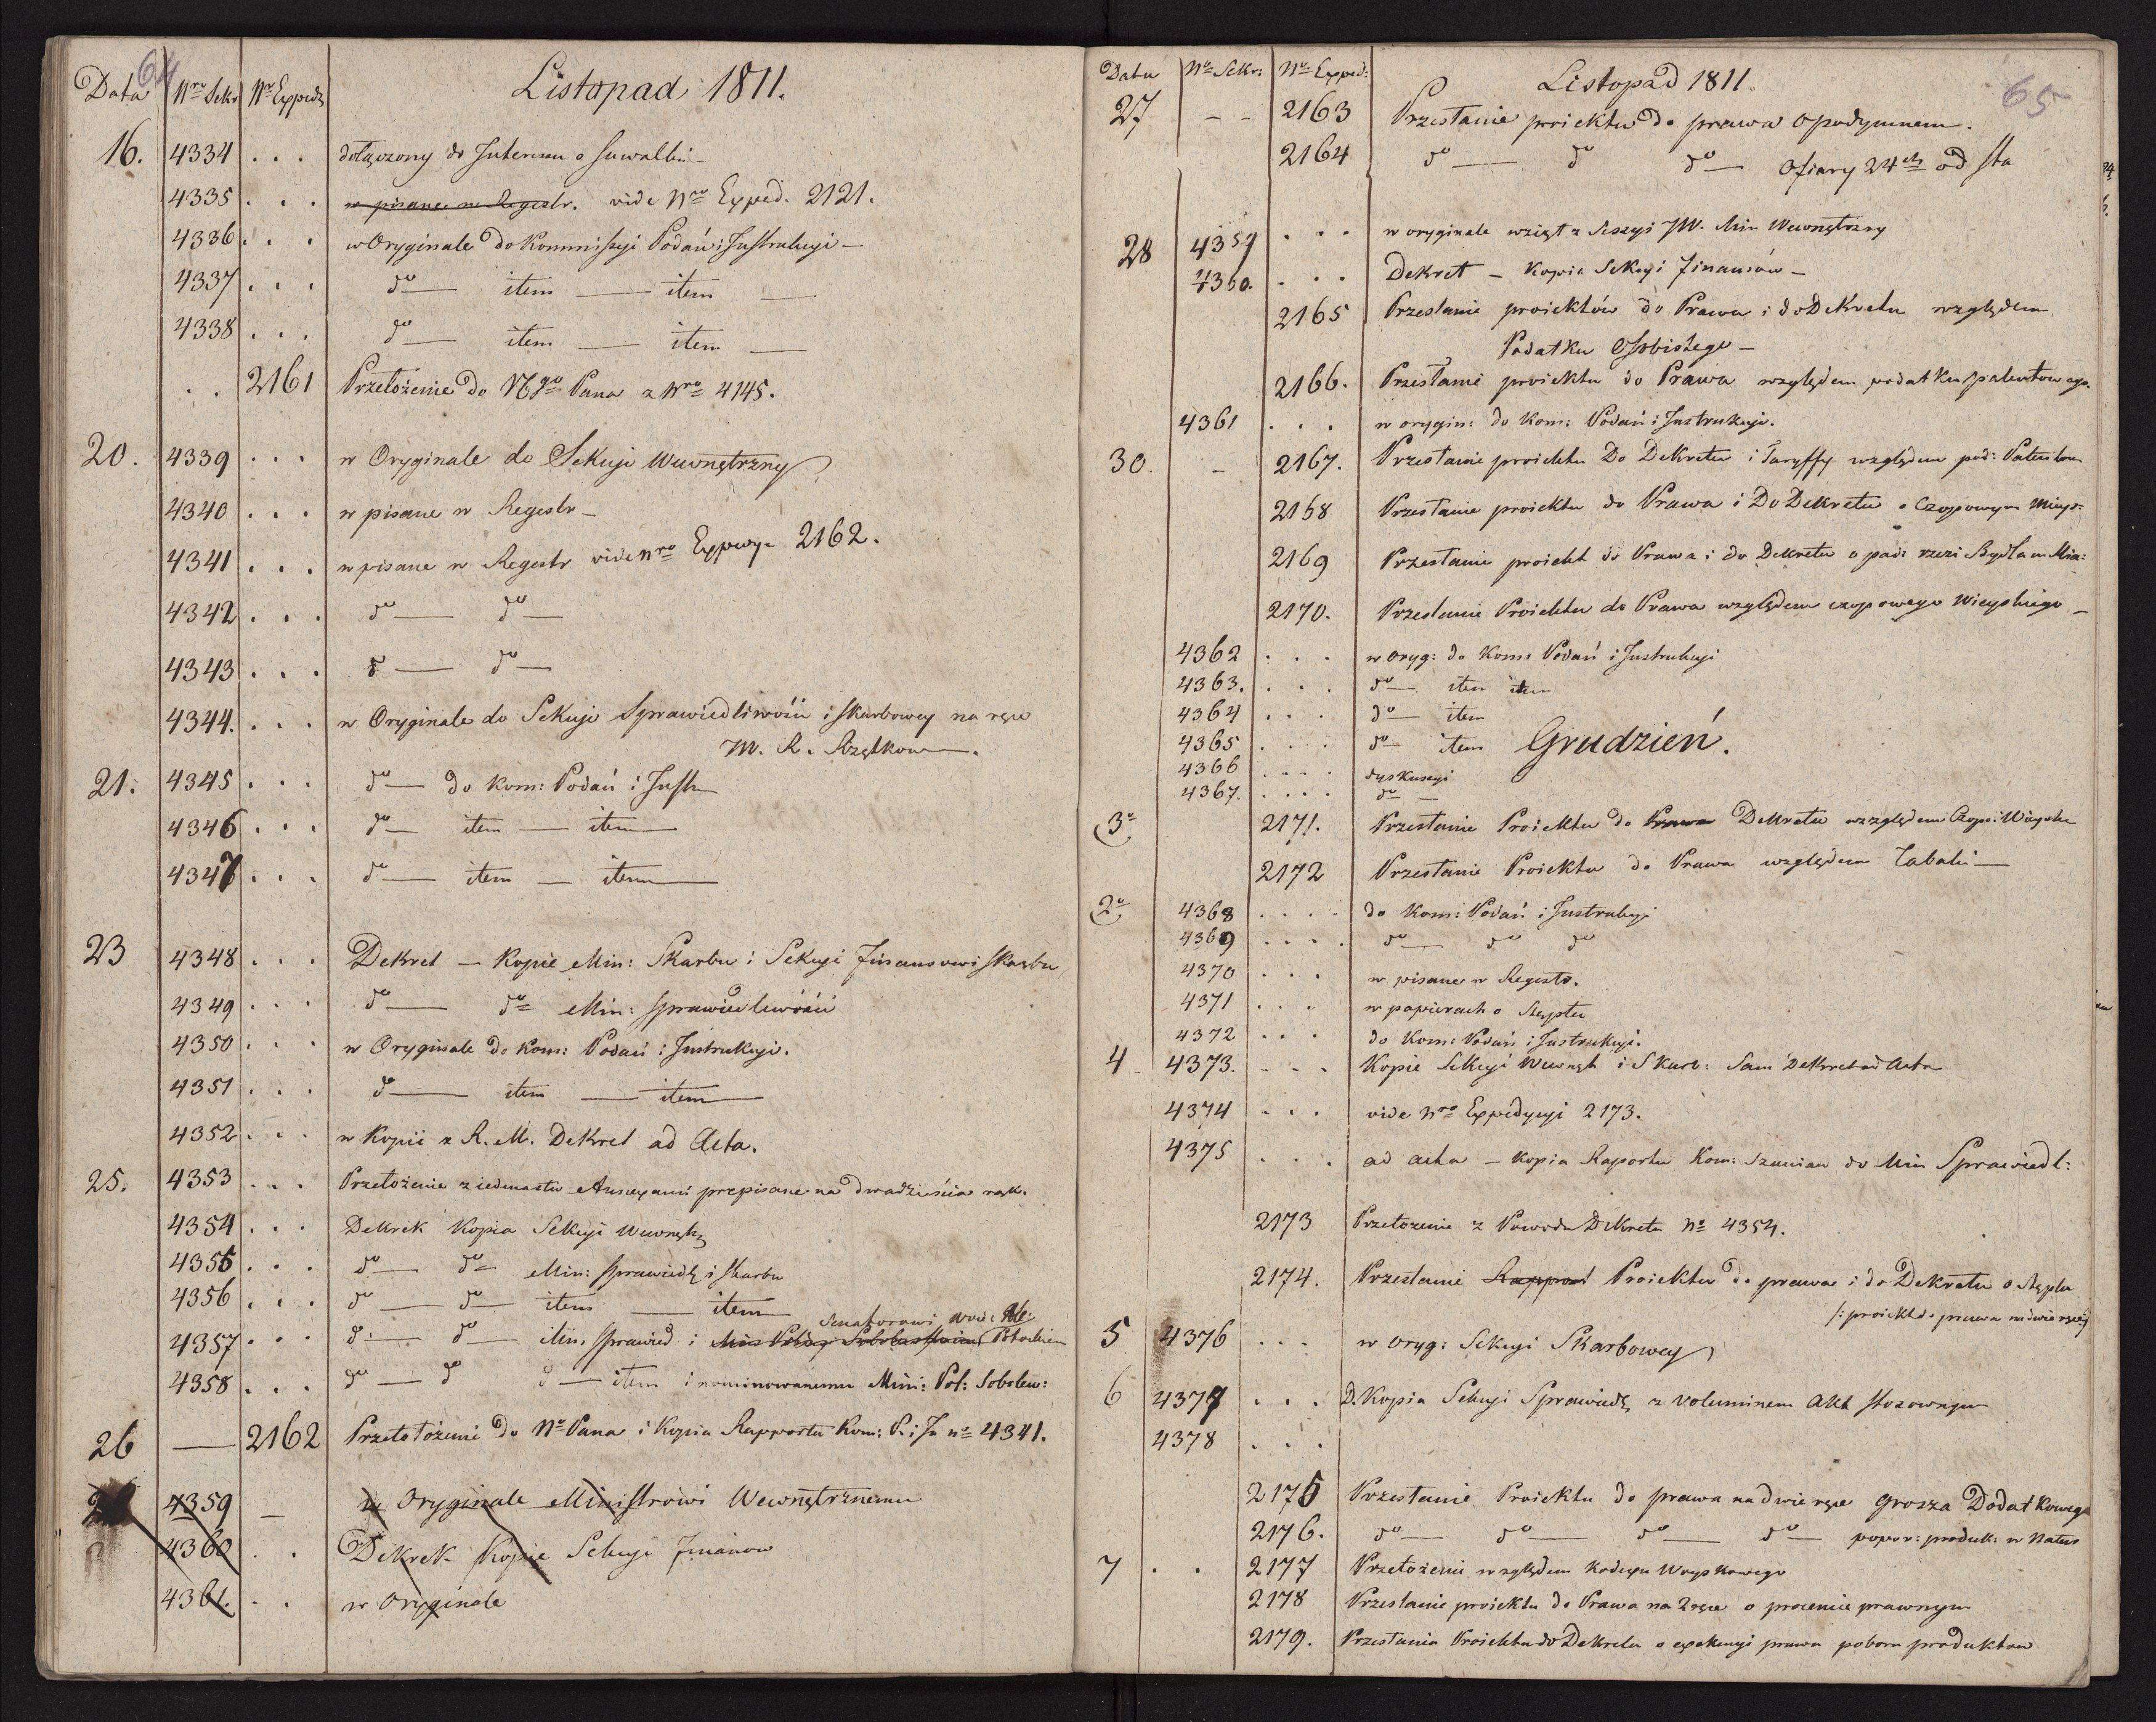 64
Data Nro Sekr Nro Expedy Listopad 1811.
16. 4334 . . . dołączony do Interessu o Suwalki —
4335 . . . w pisane w Regestr. vide Nro Exped. 2121.
4336 . . . w Oryginale do Kommissyi Podań i Instrukcyi —
4337 . . . do — item — item —
4338 . . . do — item — item —
. . 2161 Przełożenie do N Pana z Nro 4145.
20. 4339 . . . w Oryginale do Sekcyi Wewnętrzney
4340 . . . w pisane w Regestr —
4341 . . . w pisane w Regestr vide nro Expedy. 2162.
4342 . . . do — do —
4343 . . . do — do —
4344. . . . w Oryginale do Sekcyi Sprawiedliwości i Skarbowey na ręce
W. R.
21. 4345 . . . do — do Kom: Podań i Instr
4346 . . . do — item — item —
4347 . . . do — item — item —
23 4348 . . . Dekret — Kopie Min: Skarbu i Sekcyi Finansow i Skarbu
4349 . . . do — do Min: Sprawiedliwości
4350 . . . w Oryginale do Kom: Podań i Instrukcyi.
4351 . . . do — item — item —
4352 . . . w Kopii z R. M. Dekret ad Acta.
25. 4353 . . . Przełożenie z iedenastu Annexami przepisane na dwadzieścia
4354 . . . Dekret Kopia Sekcyi Wewnętrz
4355 . . . do — do Min: Sprawiedl i Skarbu
4356 . . . do — do — item — item
Senatorowi Woie:
4357 . . . d: — do — Min. Sprawied i Min Policyi Potockiem
4358 . . . do — do do — item i nominowanemu Mini: Pol: Sobolew:
26 — 2162 Przełożenie do No Pana i Kopia Rapportu Kom: P. i In no 4341.
4359 — w Oryginale Ministrowi Wewnętrznemu
4360 . . Dekret Kopie Sekcyi Finanow
4361. . . w Oryginale
65
Data No Sekr: No Exped: Listopad 1811.
27 — — 2163 Przesłanie proiektu do prawa o podymnem.
2164 do — do do — Ofiary 24ch od sta
28 4359 . . . w oryginale wziął z Sessyi JW. Min Wewnętrzny
4360. . . . Dekret — Kopia Sekcyi Finansów —
2165 Przesłanie proiektów do Prawa i do Dekretu względem
Podatku Osobistego —
2166. Przesłanie proiektu do Prawa względem podatku patentowego.
4361 . . . w orygin: do Kom: Podań i Instrukcyi.
30. — 2167. Przesłanie proiektu Do Dekretu i Taryffy względem pod: Patentow
2168 Przesłanie proiektu do Prawa i Do Dekretu o Czopowym Mieys:
2169 Przesłanie proiekt do Prawa i do Dekretu o pod: rzezi Bydła w Mia:
2170. Przesłanie Proiektu do Prawa względem czopowego Wieyskiego —
4362 . . . w oryg: do Kom: Podań i Instrukcyi
4363. . . . do — item item
4364 . . . do — item
4365 . . . do — item Grudzień.
4366 . . . . dyskussyi
4367. . . . . do —
3o 2171. Przesłanie Proiektu do Prawa Dekretu względem Czopo: Wieysku
2172 Przesłanie Proiektu do Prawa względem Tabaki —
2o 4368 . . . . do Kom: Podań i Instrukcyi
4369 . . . . do — do do
4370 . . . w pisane w Regestr.
4371 . . . w papierach o Stęplu
4372 . . . do Kom: Podań i Instrukcyi.
4 4373. . . . Kopie Sekcyi Wewnęt i Skarb: Sam Dekret ad Acta
4374 . . . vide Nro Expedycyi 2173.
4375 . . . ad acta — Kopia Raportu Kom: do Min Sprawiedl:
2173 Przełożenie z Powodu Dekretu No 4354.
2174. Przesłanie Rapport Proiektu do prawa i do Dekretu o Stęplu
/: proiekt do prawa na dwie ręce
5 4376 . . . w oryg: Sekcyi Skarbowey
6 4377 . . . D. Kopia Sekcyi Sprawiedl z voluminem Akt stosownym
4378 . . .
2175 Przesłanie Proiektu do prawa na dwie ręce Grosza Dodatkowego
2176. do — do — do — do — popor: produk: w Natur
7 . . 2177 Przełożenie względem Kodexu Woyskowego
2178 Przesłanie proiektu do Prawa na 2 ręce o procencie prawnym
2179. Przesłanie Proiektu do Dekretu o exekucyi prawa poboru produktow